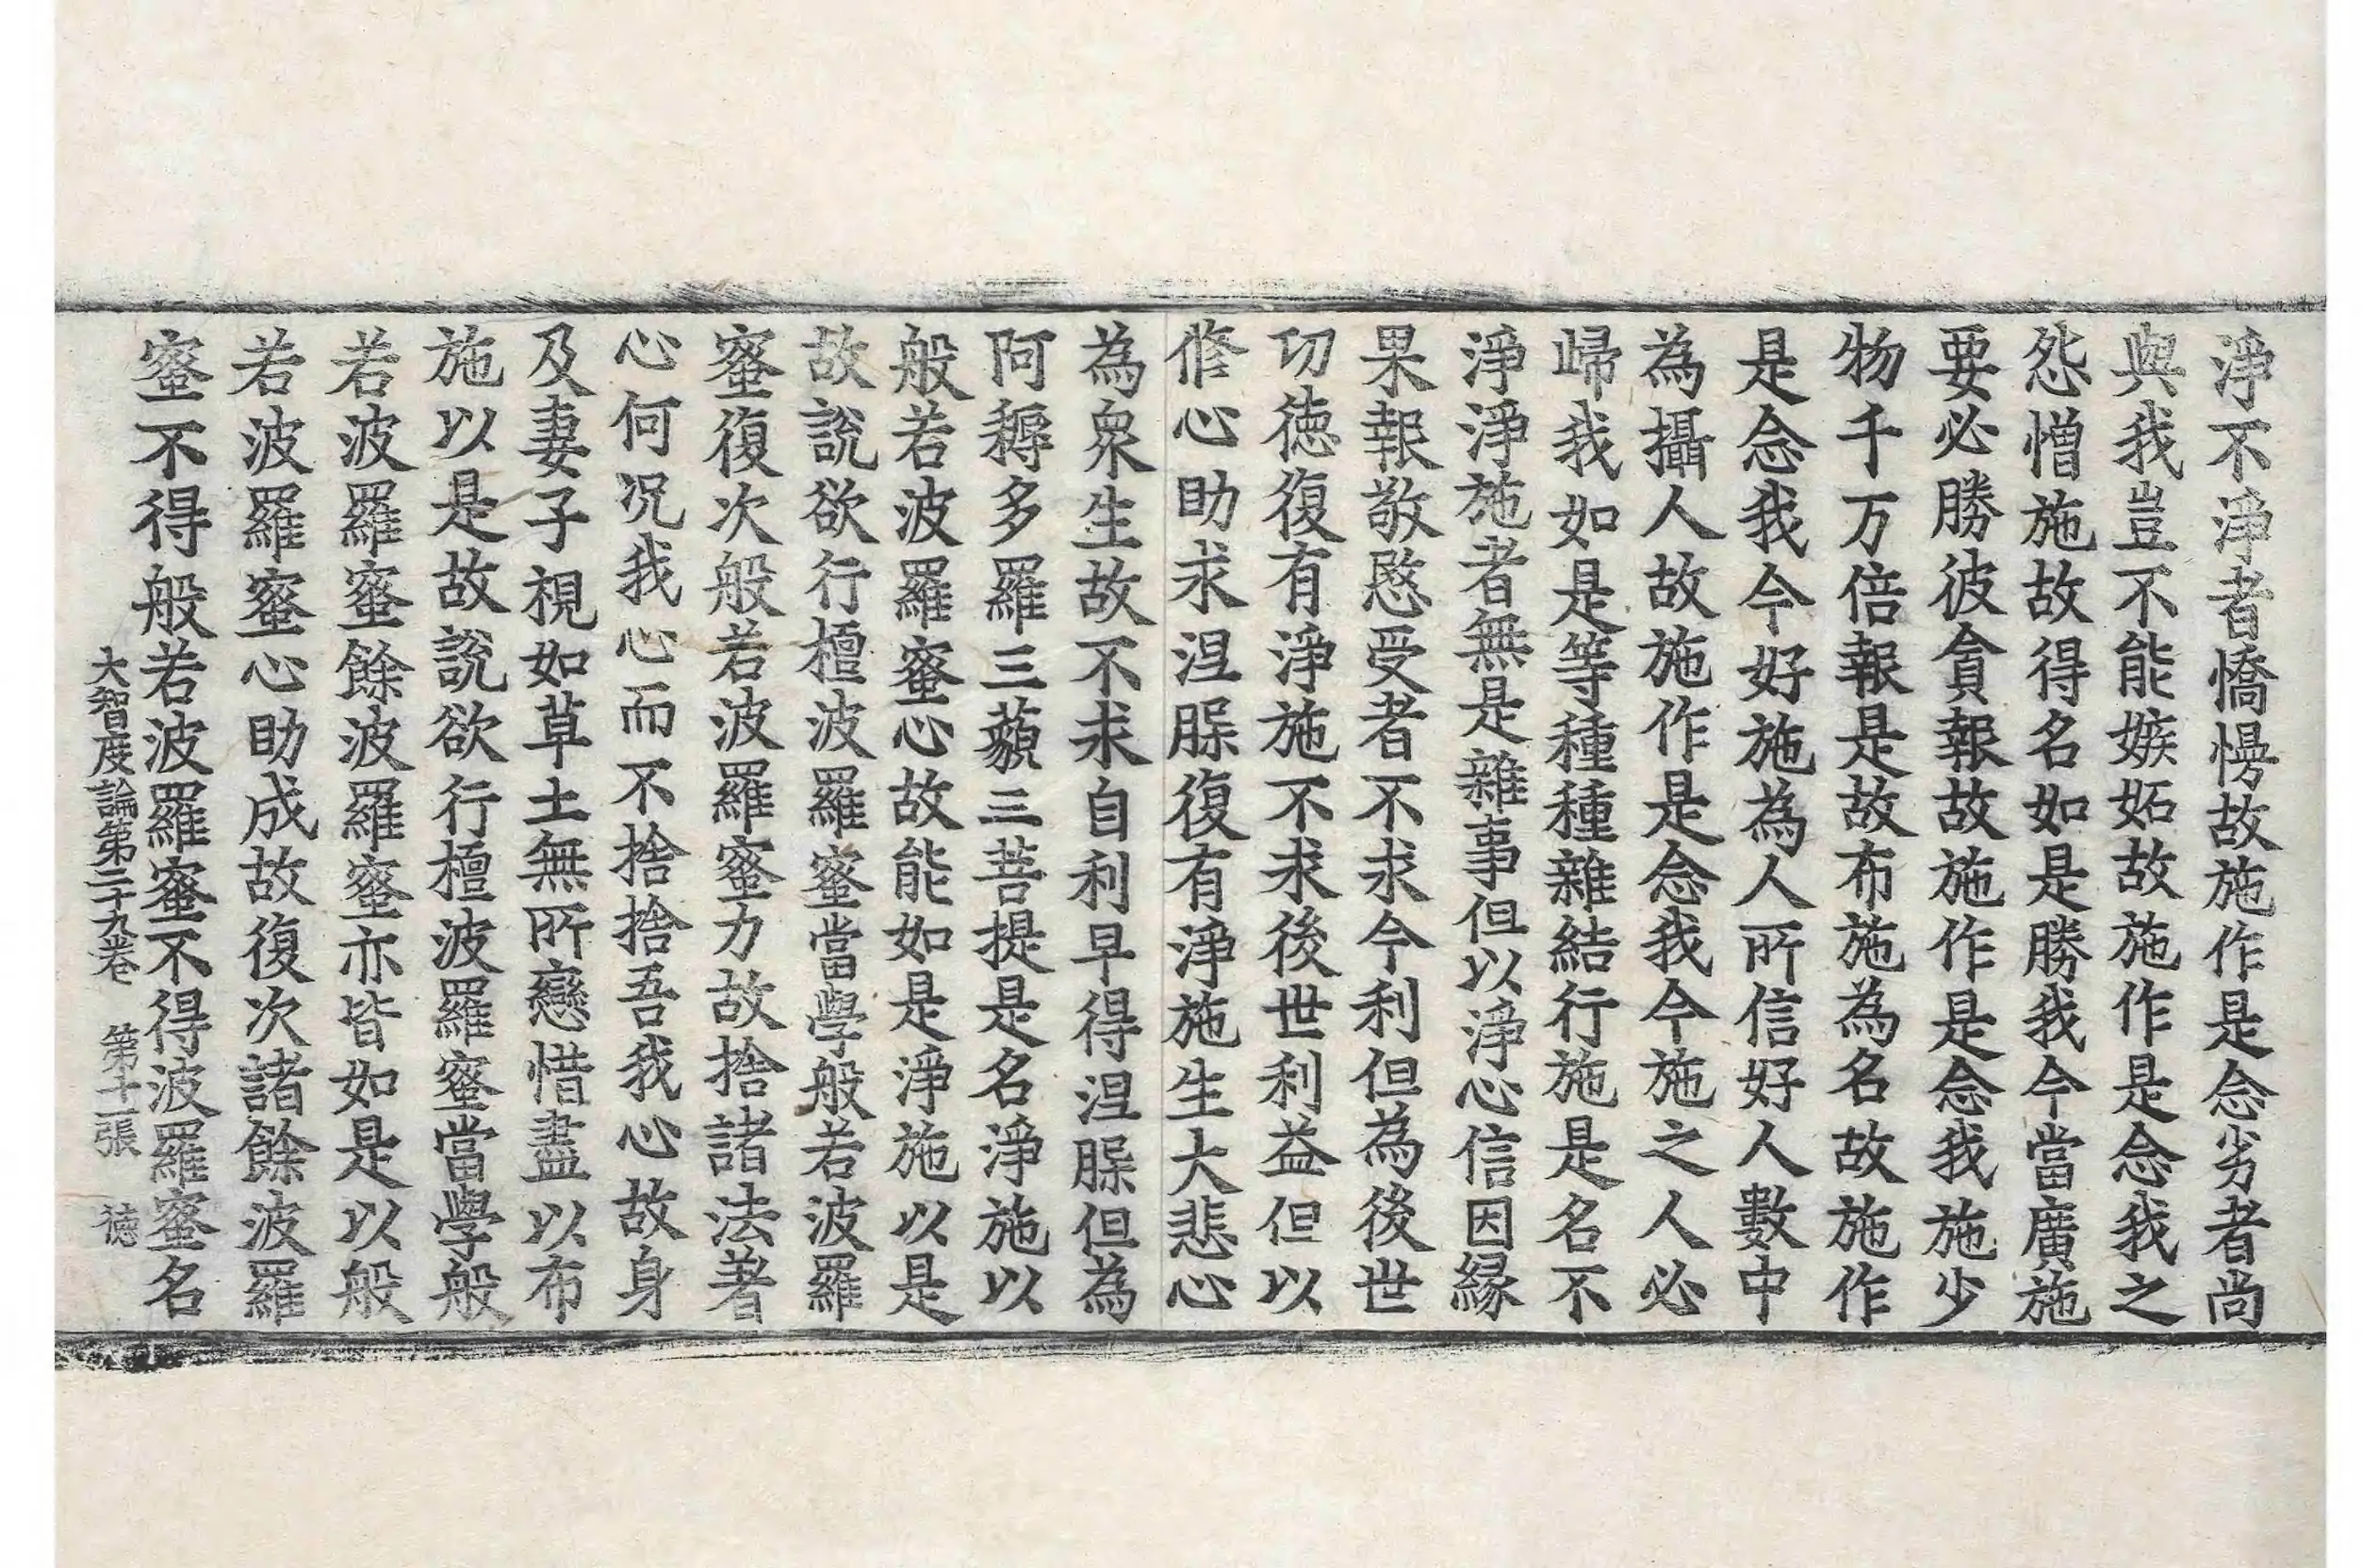 淨不淨者憍慢故施作是念劣者尚
與我豈不能嫉妬故施作是念我之
怨憎施故得名如是勝我今當廣施
要必勝彼貪報故施作是念我施少
物千万倍報是故布施為名故施作
是念我今好施為人所信好人數中
為攝人故施作是念我今施之人必
歸我如是等種種雜結行施是名不
淨淨施者無是雜事但以淨心信因緣
果報敬愍受者不求今利但為後世
功徳復有淨施不求後世利益但以
修心助求涅槃復有淨施生大悲心
為衆生故不求自利早得涅槃但為
阿耨多羅三藐三菩提是名淨施以
般若波羅蜜心故能如是淨施以是
故說欲行檀波羅蜜當學般若波羅
蜜復次般若波羅蜜力故捨諸法著
心何况我心而不捨捨吾我心故身
及妻子視如草土無所戀惜盡以布
施以是故說欲行檀波羅蜜當學般
若波羅蜜餘波羅蜜亦皆如是以般
若波羅蜜心助成故復次諸餘波羅
蜜不得般若波羅蜜不得波羅蜜名
大智度論第二十九卷 第十二張 徳